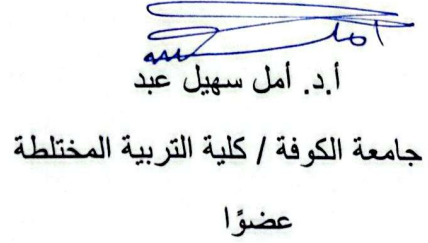 أ.د. أمل سهيل عبد
جامعة الكوفة / كلية التربية المختلطة
عضوًا